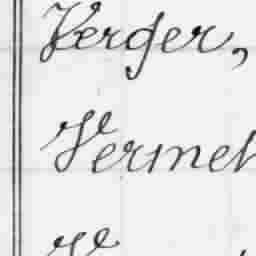 Verger,
Vermeh